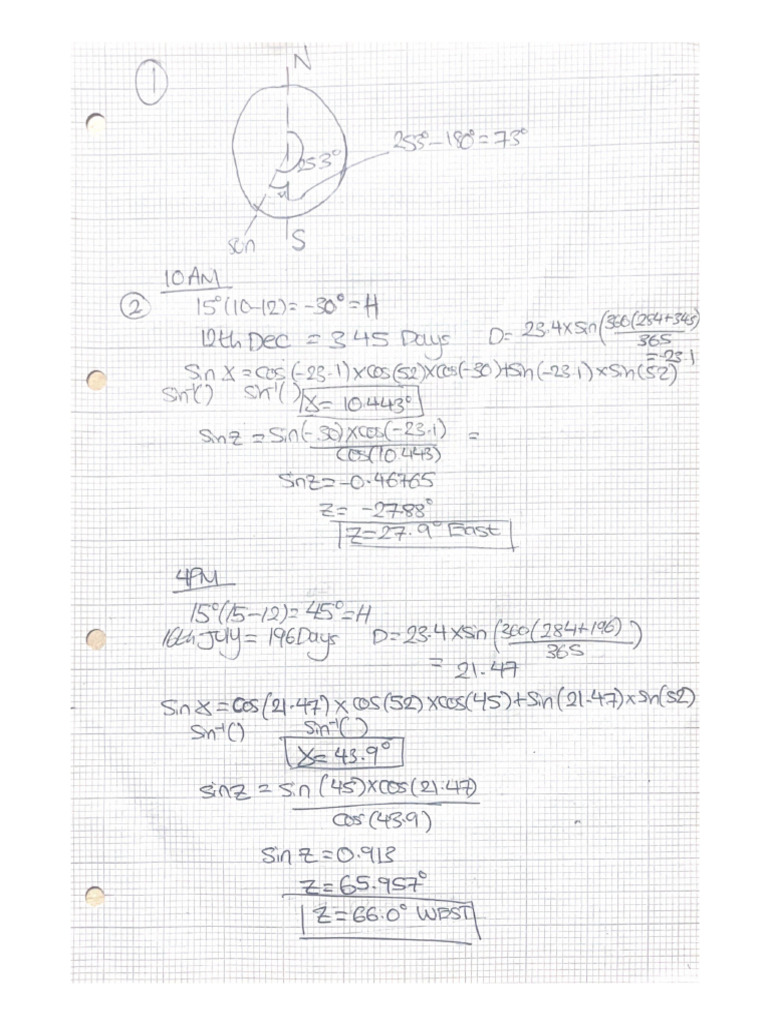 ①
N
253°
253° - 180° = 73°
sun
S
10AM
② 15°(10-12) = -30° = H
12th Dec = 345 Days D = 23.4×sin(360(284+345)
365
= -23.1
Sin α = cos(-23.1)×cos(52)×cos(-30)+sin(-23.1)×sin(52)
Sin⁻¹() sin⁻¹()
α = 10.443°
Sin z = Sin(-30)×cos(-23.1) =
cos(10.443)
Sin z = -0.46765
z = -27.88°
z = 27.9° East
4PM
15°(15-12) = 45° = H
16th July = 196 Days D = 23.4×sin(360(284+196))
365
= 21.47
Sin α = cos(21.47)×cos(52)×cos(45)+sin(21.47)×sin(52)
Sin⁻¹() Sin⁻¹()
α = 43.9°
sin z = sin(45)×cos(21.47)
cos(43.9)
Sin z = 0.913
z = 65.957°
z = 66.0° WEST